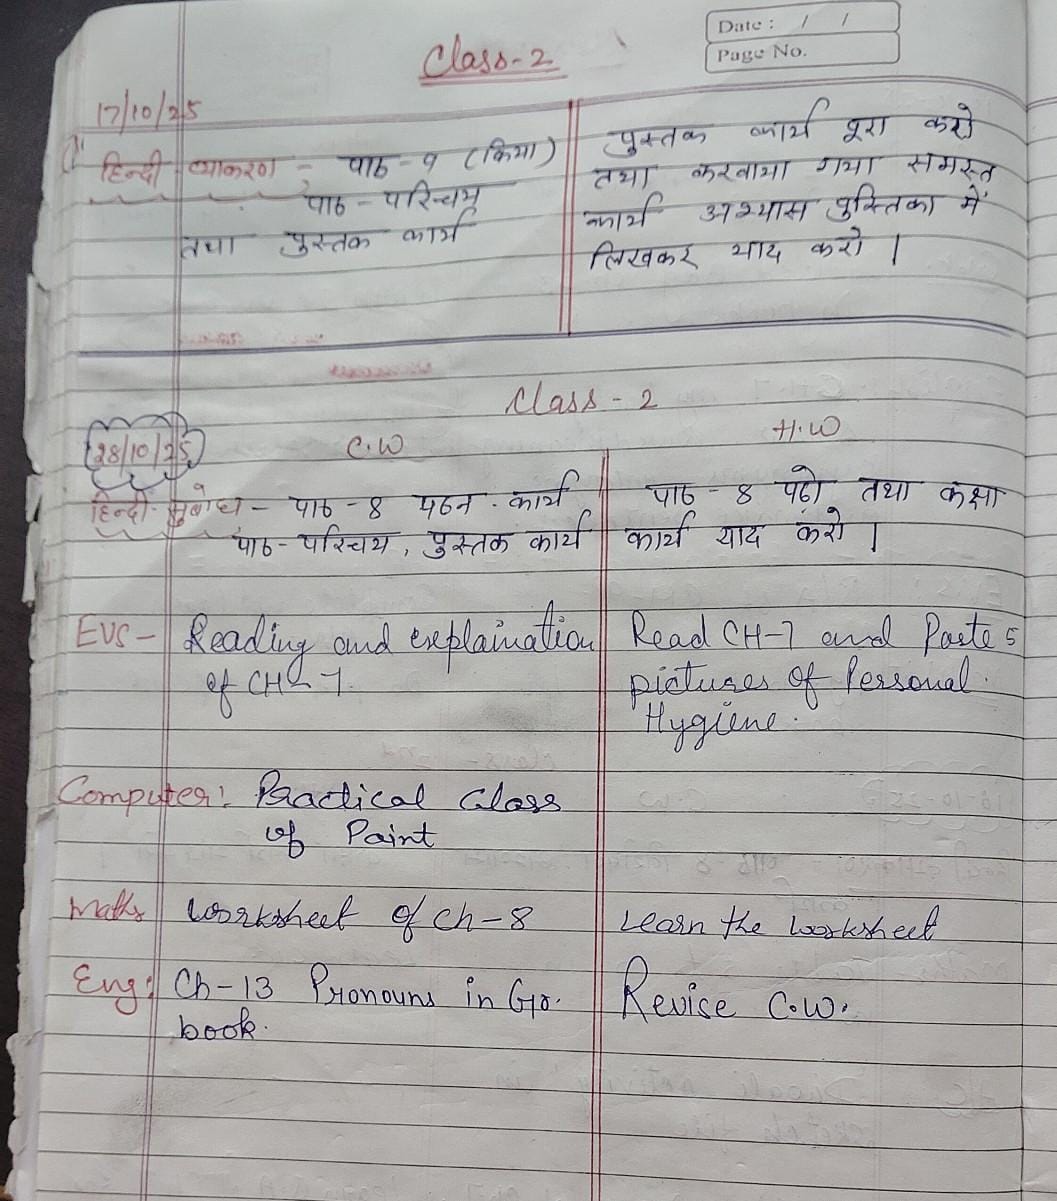 Date : / /
Page No.
Class-2
17/10/25
हिन्दी व्याकरण - पाठ - 9 (क्रिया)
पाठ - परिचय
तथा पुस्तक कार्य
पुस्तक कार्य पूरा करो
तथा करवाया गया समस्त
कार्य अभ्यास पुस्तिका में
लिखकर याद करो ।
Class - 2
28/10/25
C.W
H.W
हिन्दी सुबोध - पाठ - 8 पठन कार्य
पाठ - परिचय, पुस्तक कार्य
पाठ - 8 पढो तथा कक्षा
कार्य याद करो ।
EVS - Reading and explaination
of CH - 7.
Read CH-7 and Paste 5
pictures of Personal
Hygiene.
Computer: Practical Class
of Paint
Maths worksheet of Ch-8
Learn the worksheet
Eng: Ch-13 Pronouns in Gr.
book.
Revise C.W.